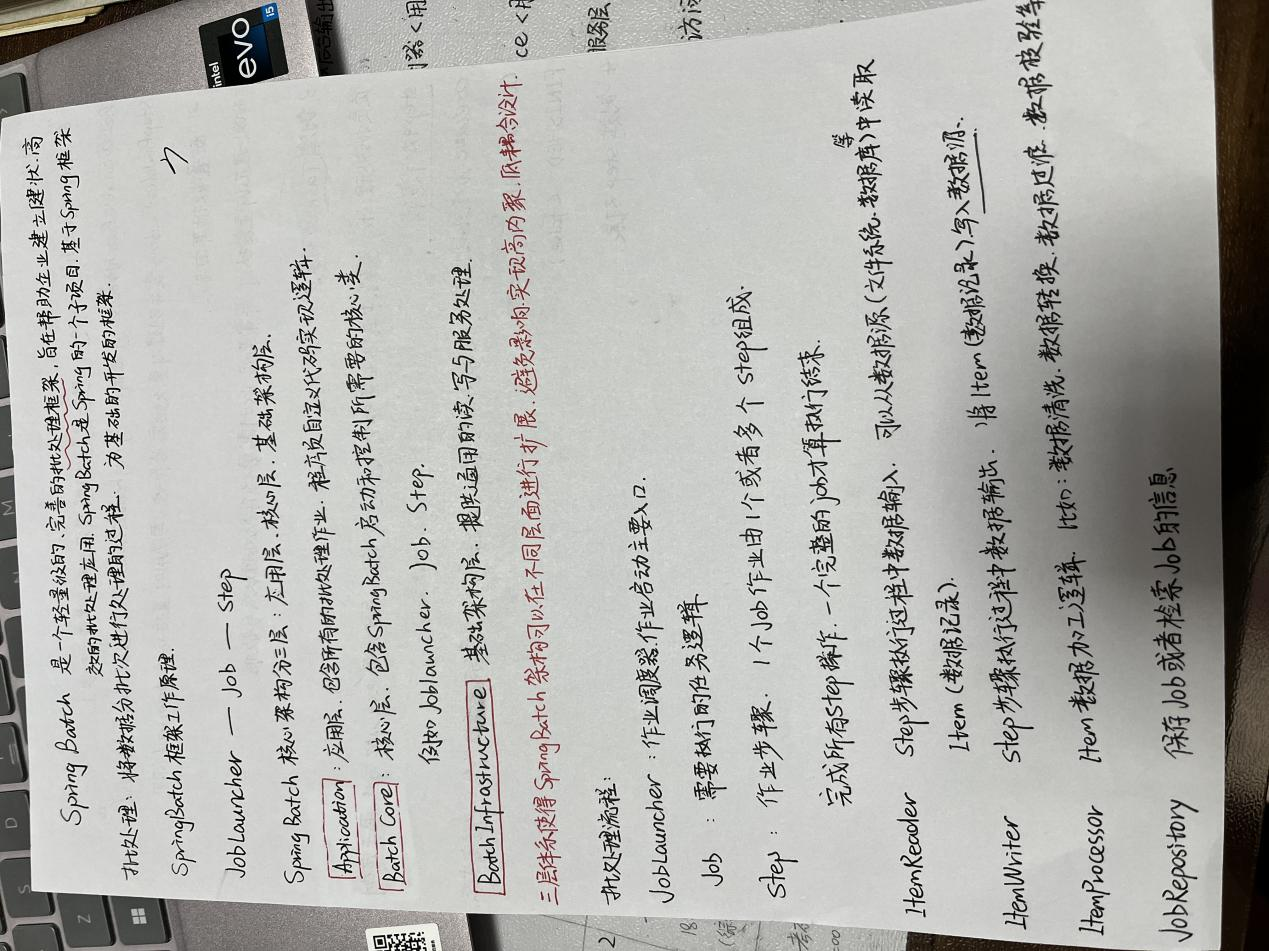 Spring Batch 是一个轻量级的、完善的批处理框架,旨在帮助企业建立健状、高
效的批处理应用. SpringBatch是Spring的一个子项目,基于Spring框架
为基础的开发的框架.
批处理: 将数据分批次进行处理的过程.
SpringBatch框架工作原理.
JobLauncher — Job — Step
Spring Batch 核心架构分三层: 应用层、核心层、基础架构层.
Application: 应用层、包含所有的批处理作业,程序员自定义代码实现逻辑.
Batch Core: 核心层、包含SpringBatch启动和控制所需要的核心类.
例如 JobLauncher. Job. Step.
Batch Infrastructure 基础架构层、提供通用的读、写与服务处理.
三层体系使得SpringBatch架构可以在不同层面进行扩展、避免影响,实现高内聚、低耦合设计.
批处理流程:
JobLauncher: 作业调度器,作业启动主要入口.
Job : 需要执行的任务逻辑
Step : 作业步骤、1个Job作业由1个或者多个 Step组成.
完成所有Step操作、一个完整的Job才算执行结束.
ItemReader Step步骤执行过程中数据输入、可以从数据源(文件系统、数据库等)中读取
Item (数据记录).
ItemWriter Step步骤执行过程中数据输出、将Item(数据记录)写入数据源、
ItemProcessor Item数据加工逻辑 比如: 数据清洗、数据转换、数据过滤、数据校验等
JobRepository 保存Job或者检索Job的信息
intel
evo
i5